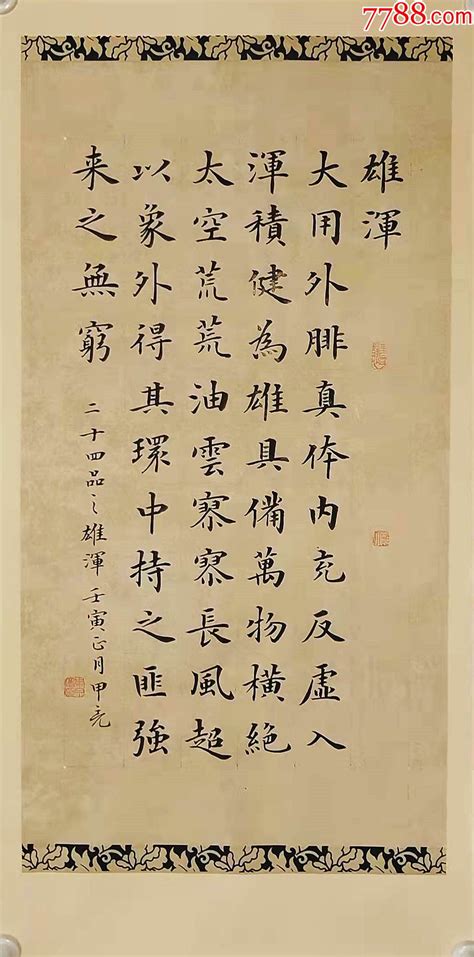 7788.com
雄渾
大用外腓真体内充反虛入
渾積健為雄具備萬物橫絕
太空荒荒油雲寥寥長風超
以象外得其環中持之匪強
来之無窮
二十四品之雄渾壬寅正月甲亮